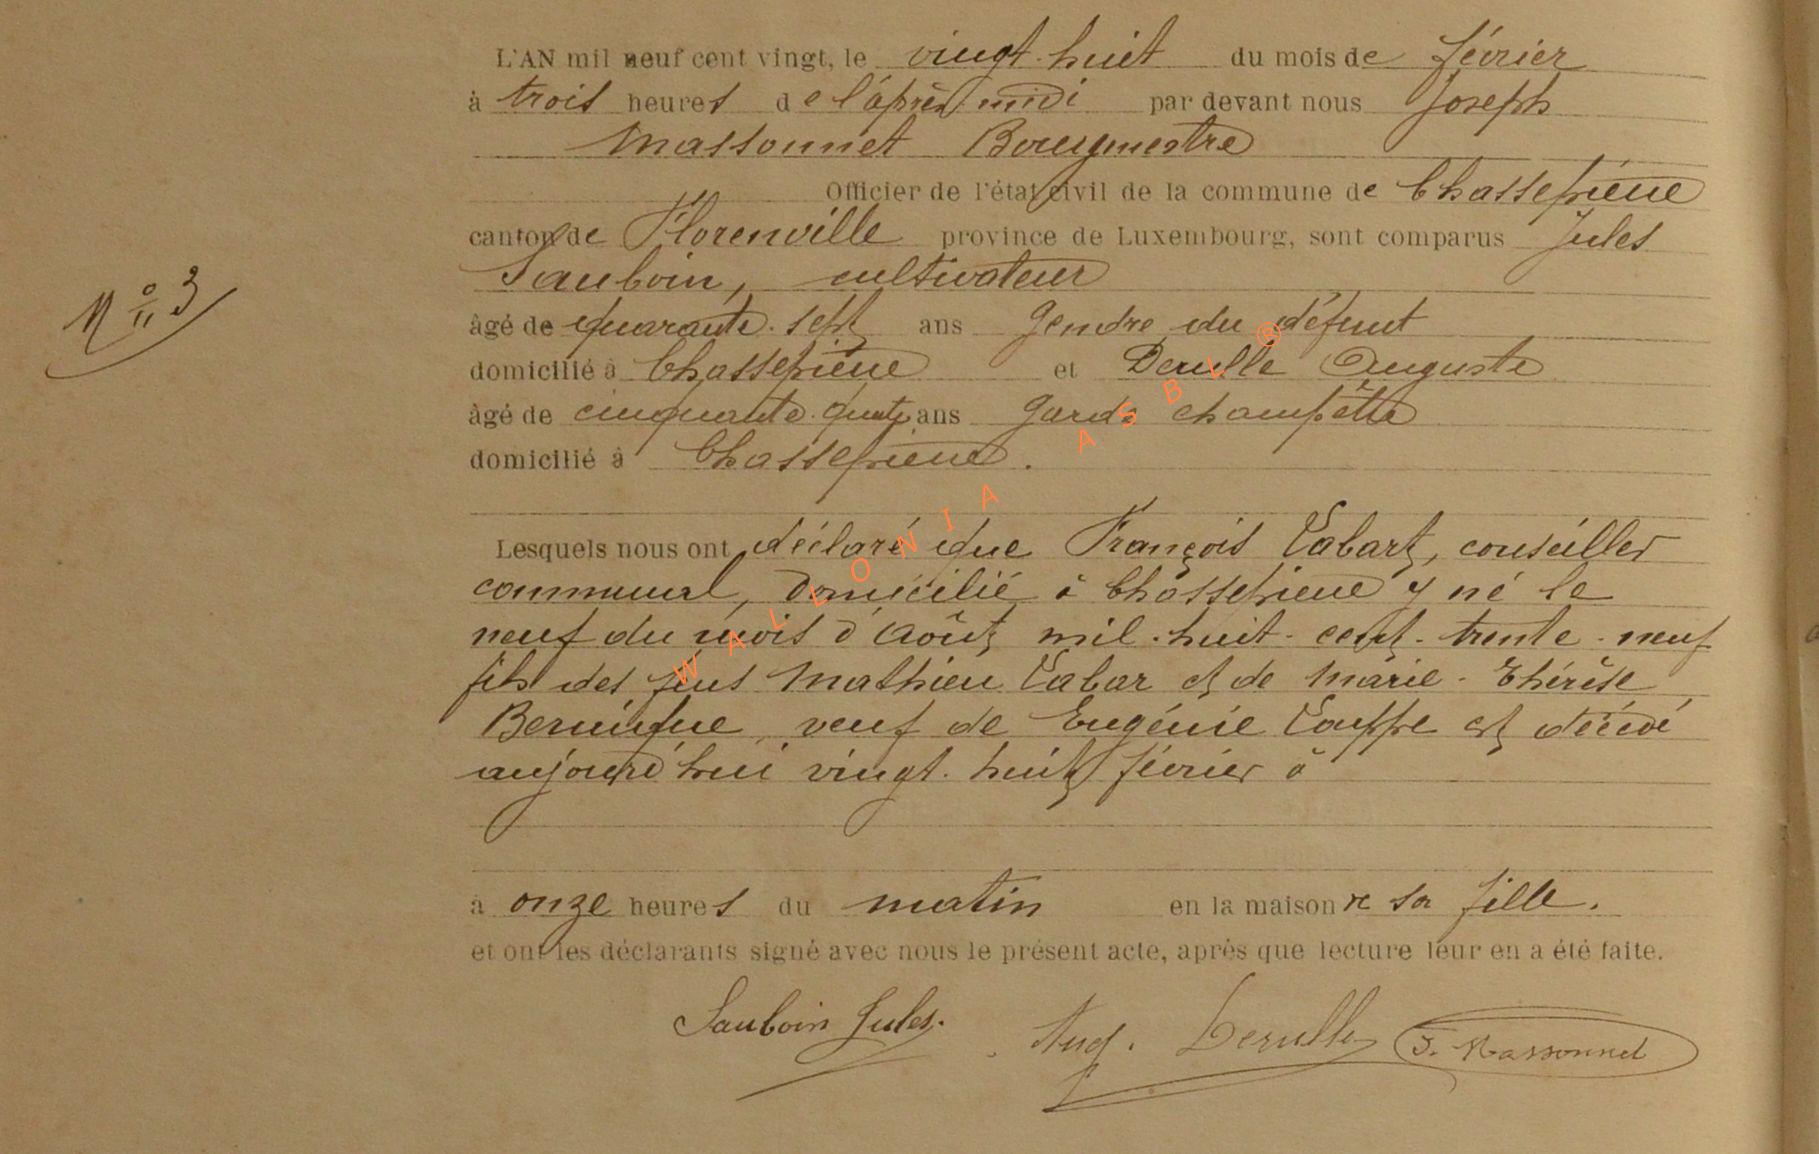 L'AN mil neuf cent vingt, le vingt-huit du mois de février
à trois heures de l'après-midi par devant nous Joseph
Massonnet Bourgmestre
Officier de l'état civil de la commune de Chassepierre
canton de Florenville province de Luxembourg, sont comparus Jules
Sauboin, cultivateur
N° 3
âgé de quarante-sept ans gendre du défunt
domicilié à Chassepierre et Derulle Auguste
âgé de cinquante-quatre ans garde champêtre
domicilié à Chassepierre.
Lesquels nous ont déclaré que François Labart, conseiller
communal, domicilié à Chassepierre y né le
neuf du mois d'Août mil-huit-cent-trente-neuf
fils des feus Mathieu Labar et de Marie-Thérèse
veuf de Eugénie est décédé
aujourd'hui vingt-huit février à
à onze heures du matin en la maison de sa fille.
et ont les déclarants signé avec nous le présent acte, après que lecture leur en a été faite.
Sauboin Jules. Aug. Derulle J. Massonnet
WALLONIA ASBL ®